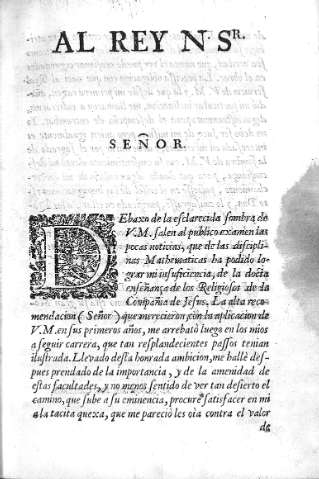 AL REY N. Sʀ.
SEÑOR.
DEbaxo de la esclarecida sombra de
V.M. salen al publico examen las
pocas noticias, que de las disciplinas
nas Mathematicas ha podido lo-
grar mi insuficiencia, de la docta
enseñança de los Religiosos de la
Compañia de Jesus. La alta reco-
mendacion (Señor) que merecieron con la aplicacion de
V.M. en sus primeros años, me arrebatò luego en los mios
a seguir carrera, que tan resplandecientes passos tenian
ilustrada. Llevado desta honrada ambicion, me hallè des-
pues prendado de la importancia, y de la amenidad de
estas facultades, y no menos sentido de ver tan desierto el
camino, que sube a su eminencia, procurè satisfacer en mi
a la tacita quexa, que me pareciò les oia contra el valor
de